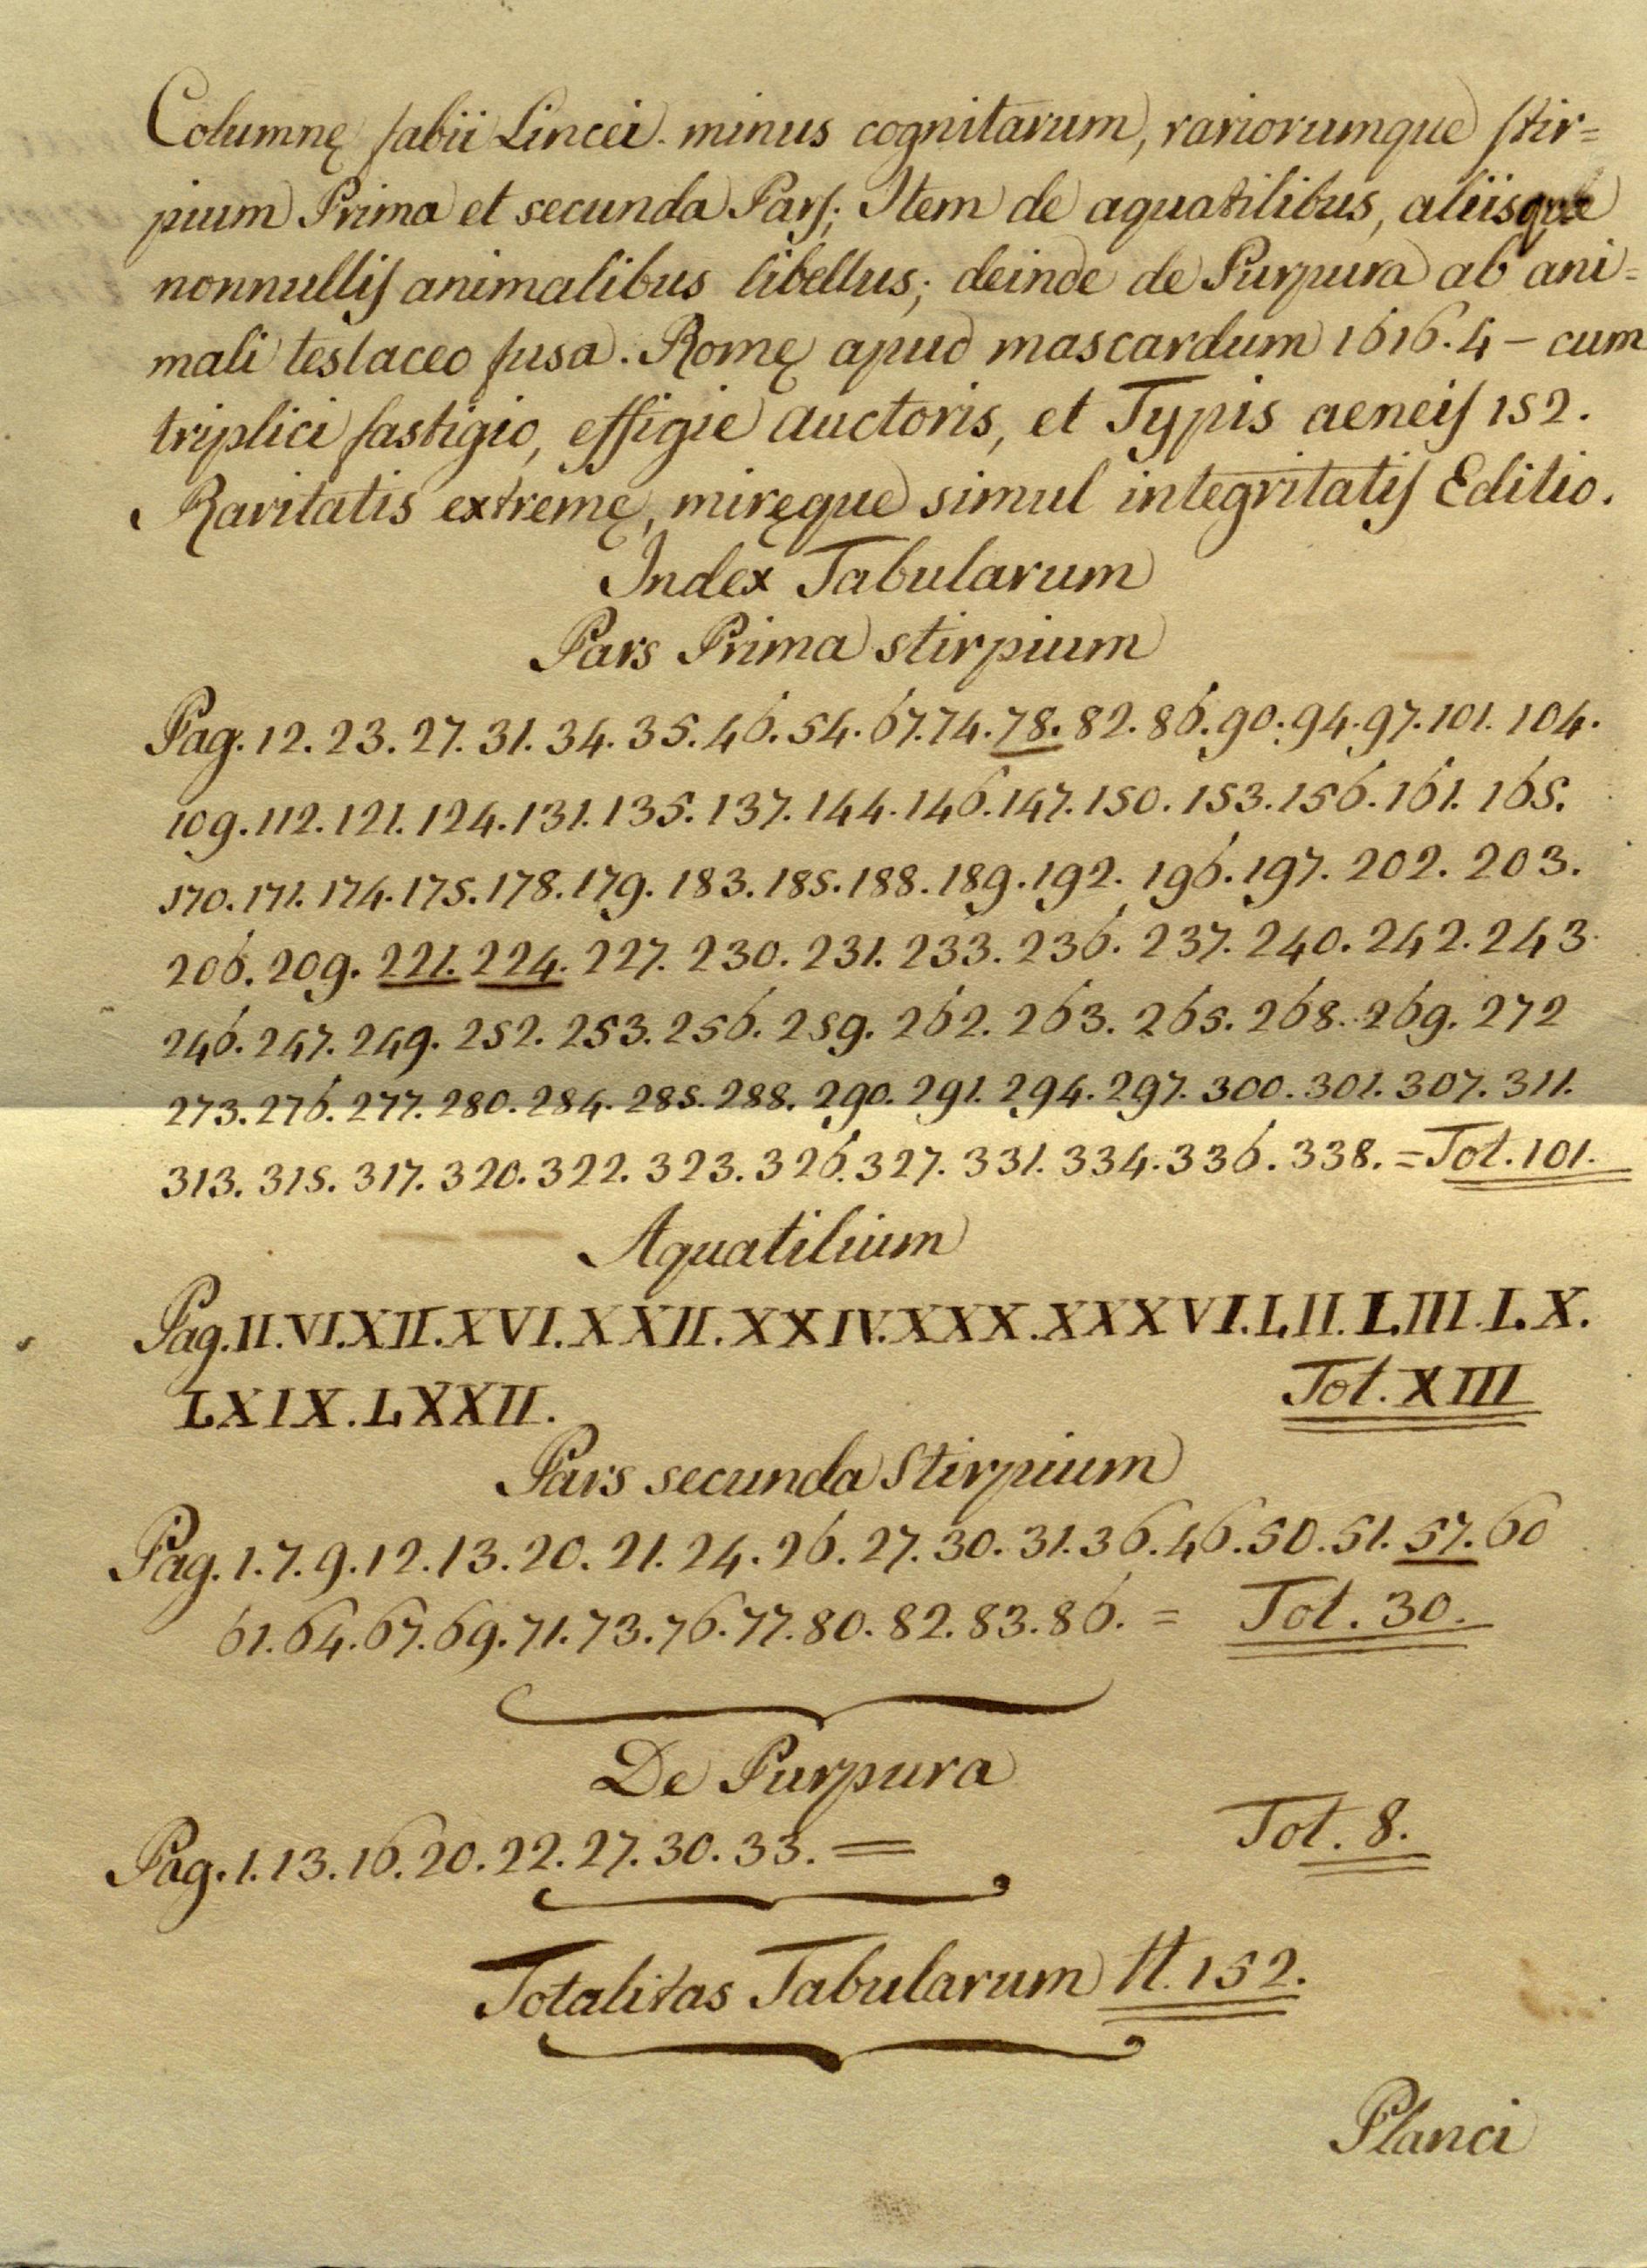 Columnę fabii Lincei. minus cognitarum, rariorumque stir=
pium Prima et secunda Pars; Item de aquatilibus, aliisque
nonnullis animalibus libellus; deinde de Purpura ab ani=
mali testaceo fusa. Romę apud mascardum 1616. 4 – cum
triplici fastigio, effigie auctoris, et Typis aeneis 152.
Raritatis extremę, miręque simul integritatis Editio.
Index Tabularum
Pars Prima stirpium
Pag. 12. 23. 27. 31. 34. 35. 46. 54. 67. 74. 78. 82. 86. 90. 94. 97. 101. 104.
109. 112. 121. 124. 131. 135. 137. 144. 146. 147. 150. 153. 156. 161. 165.
170. 171. 174. 175. 178. 179. 183. 185. 188. 189. 192. 196. 197. 202. 203.
206. 209. 221. 224. 227. 230. 231. 233. 236. 237. 240. 242. 243.
246. 247. 249. 252. 253. 256. 259. 262. 263. 265. 268. 269. 272
273. 276. 277. 280. 284. 285. 288. 290. 291. 294. 297. 300. 301. 307. 311.
313. 315. 317. 320. 322. 323. 326. 327. 331. 334. 336. 338. = Tot. 101.
Aquatilium
Pag. II. VI. XII. XVI. XXII. XXIV. XXX. XXXVI. LII. LIII. LX.
LXIX. LXXII. Tot. XIII
Pars secunda Stirpium
Pag. 1. 7. 9. 12. 13. 20. 21. 24. 26. 27. 30. 31. 36. 46. 50. 51. 57. 60
61. 64. 67. 69. 71. 73. 76. 77. 80. 82. 83. 86. = Tot. 30.
De Purpura
Pag. 1. 13. 16. 20. 22. 27. 30. 33. = Tot. 8.
Totalitas Tabularum N. 152.
Planci